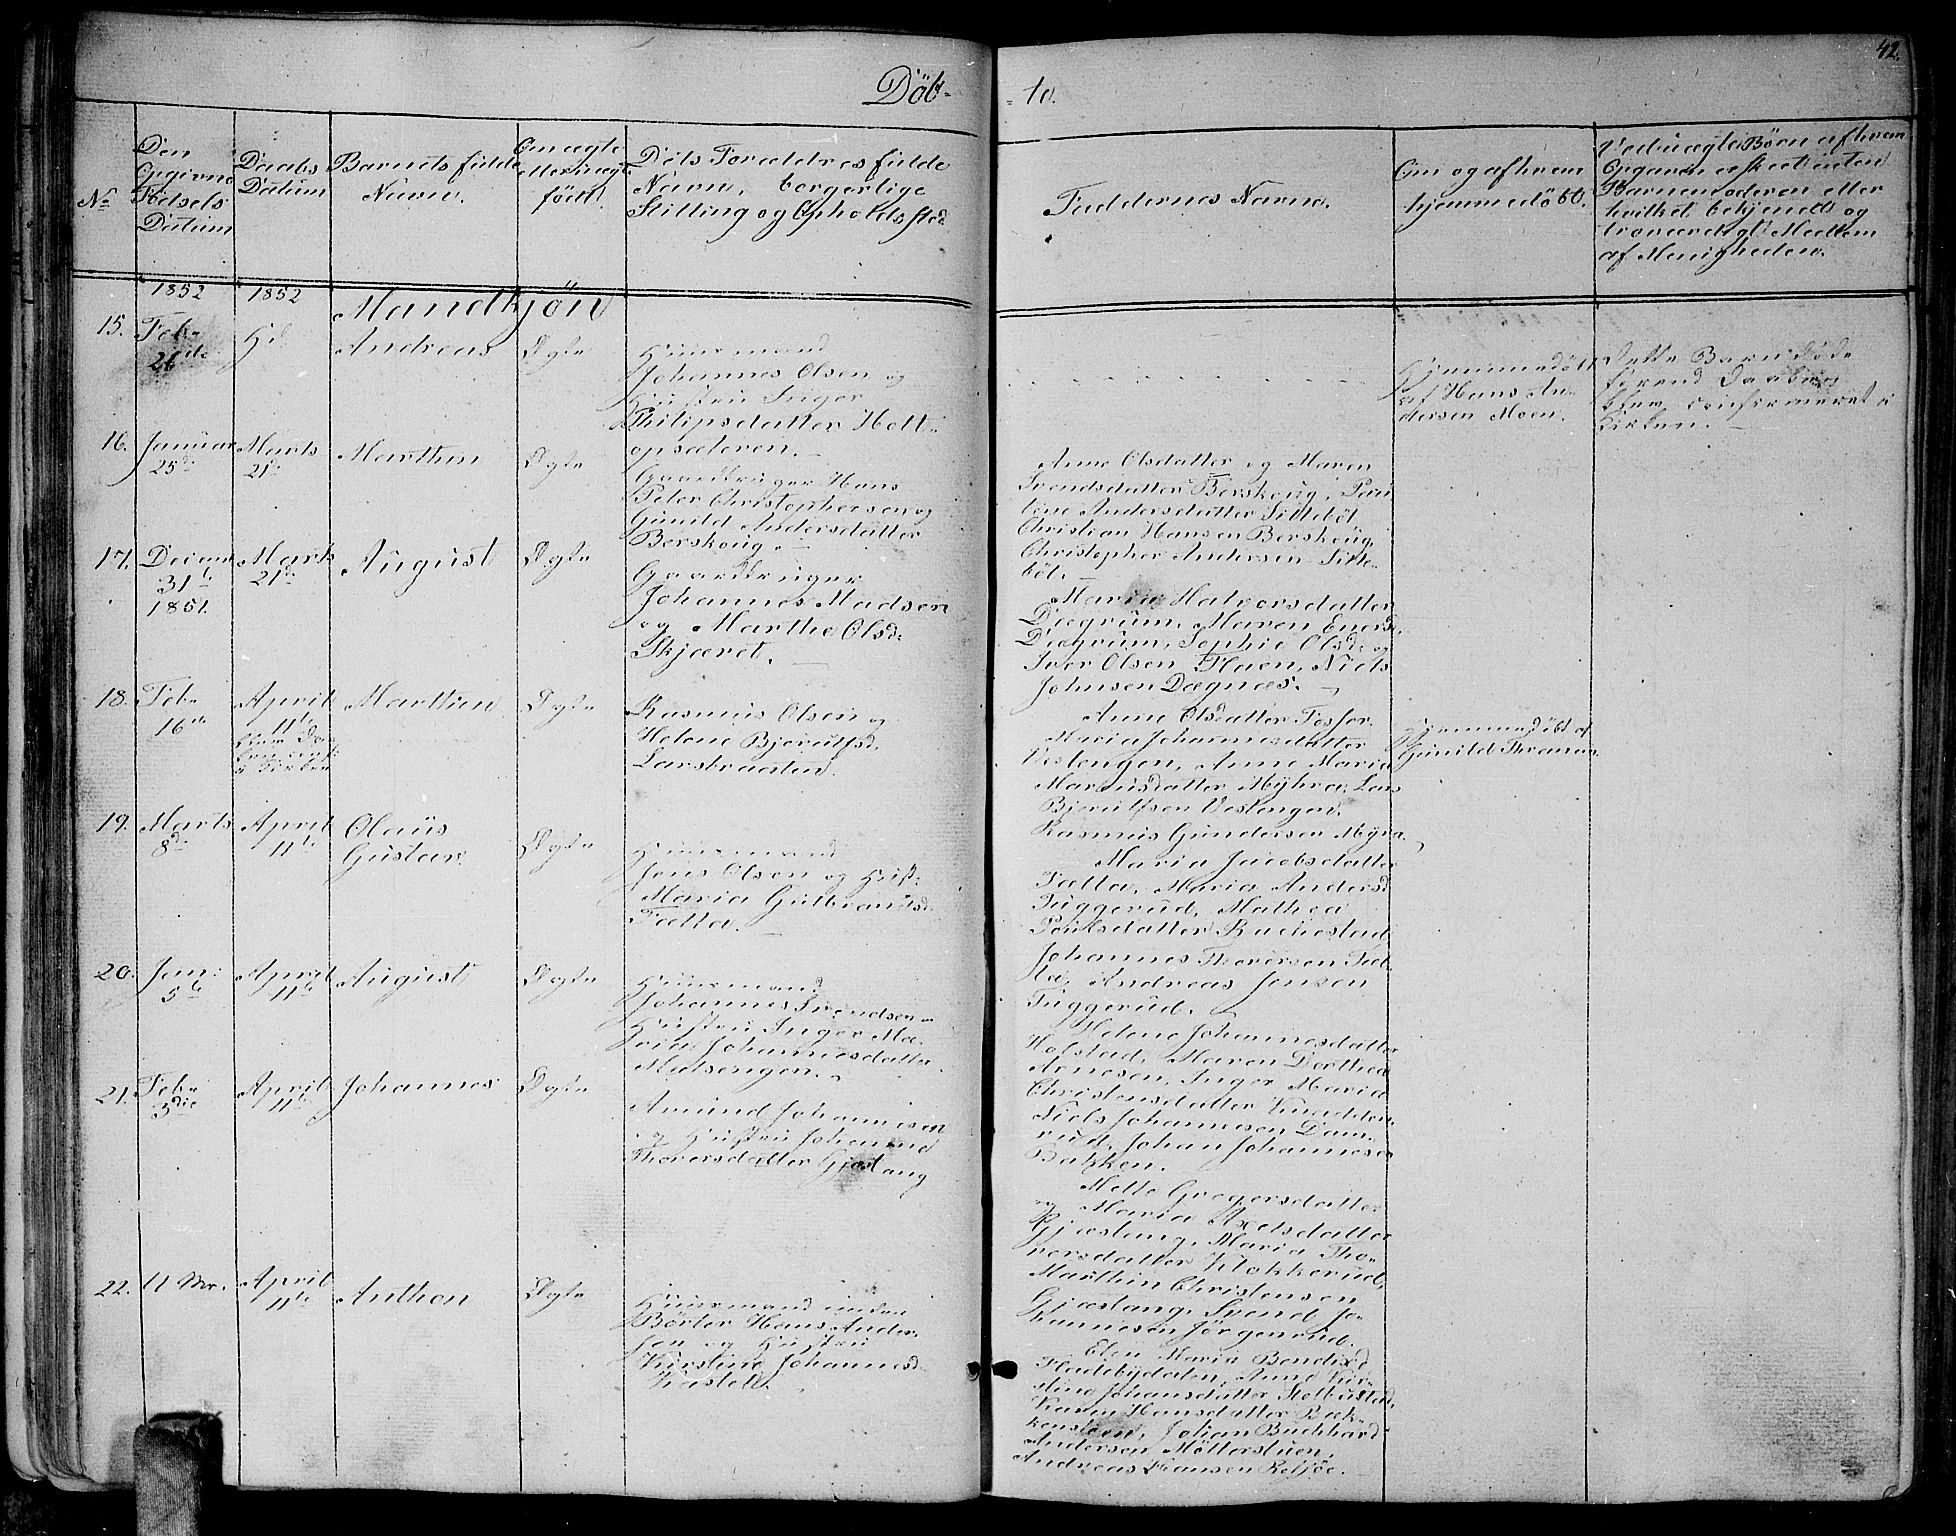 42.
Döb-
-te.
No
Den
Opgivne
Födsels
Datum
Daabs
Datum
Barnets fulde
Navn.
Om ægte
eller uægte
födt.
Dets Forældres fulde
Navn, borgerlige
Stilling og Opholdssted
Faddernes Navne.
Om og af hvem
hjemmedöbt.
Ved uægte Börn af hvem
Opgaven er skeet uden
Barnemoderen eller
hvilket bekjendt og
troværdigt Medlem
af Menigheden.
1852
1852
Mandkjön
15.
Feb.
26de
Andreas
Ægte
Huusmand
Johannes Olsen og
Hustru Inger
Philipsdatter Hott-
opsæteren.
Hjemmedöbt
af Hans An-
dersen Moen.
Dette Barn döde
forend Daaben
blev confirmeret i
Kirken.
16.
Januar
25de
Marts
21de
Marthin
Ægte
Gaardbruger Hans
Peter Christophersen og
Gunild Andersdatter
Berskoug.
Anne Olsdatter og Maren
Svendsdatter Berskoug, Pau-
line Andersdatter Sitteböl
Christian Hansen Berskoug,
Christopher Andersen Sitte-
böl.
17.
Decem
31te
1851.
Marts
21de
August
Ægte
Gaardbruger
Johannes Madsen
og Marthe Olsd:
Skjæret.
Maria Halvorsdatter
Dægrum, Maren Enersd.
Dægrum, Sophie Olsd: og
Iver Olsen Flaen, Niels
Johnsen Dægnæs.
18.
Feb.
16de
April
11te
blev Daa-
ben conf:
i Kirken
Marthin
Ægte
Rasmus Olsen og
Helene Bjerulfsd.
Larsbraaten.
Anne Olsdatter Fosser
Maria Johannesdatter
Vestengen, Anne Maria
Mariusdatter Myhra, Lars
Bjerulfsen Vestengen,
Rasmus Gundersen Myra.
Hjemmedöbt af
Gunild Thranem.
19.
Marts
8de
April
11te
Olaus
Gustav
Ægte
Huusmand
Jens Olsen og Hust:
Maria Gulbrandsd:
Tætta.
Maria Jacobsdatter
Tætta, Maria Andersd
Tuggerud, Mathea
Poulsdatter Rakestad
Johannes Thoresen Tæt-
ta, Andreas Jensen
Tuggerud.
20.
Jan:
5te
April
11te
August
Ægte
Huusmand
Johannes Svendsen
Hustru Inger Ma-
ria Johannesdatter
Matserengen.
Helene Johannesdatter
Hofstad, Maren Dorthea
Arnesen, Inger Maria
Christensdatter Knadde-
rud, Niels Johannesen Dam-
Johan Johannesen
Bakken.
21.
Feb.
3die
April
11te
Johannes
Ægte
Amund Johannesen
og Hustru Johanne
Thoresdatter Gjæslang
Mette Gregersdatter
og Maria Axelsdatter
Gjæslang, Maria Tho-
resdatter Klokkerud,
Marthin Christensen
Gjæslang, Svend Jo-
hannesen Jörgenrud.
22.
11 Mar.
April
11te
Anthon
Ægte
Huusmand uden
Börter Hans Ander-
sen og Hustru
Kirstine Johannesd
Kastell.
Elen Maria Bendixd
Fladebydalen, Anne Kir-
stine Johansdatter
Karen Hansdatter Bæk-
kensteen, Johan Buchhard
Andersen Möllerstuen,
Andreas Hansen Retföe.